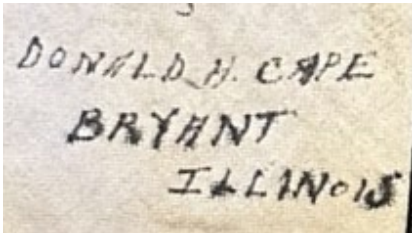 DONALD H. CAPE
BRYANT
ILLINOIS